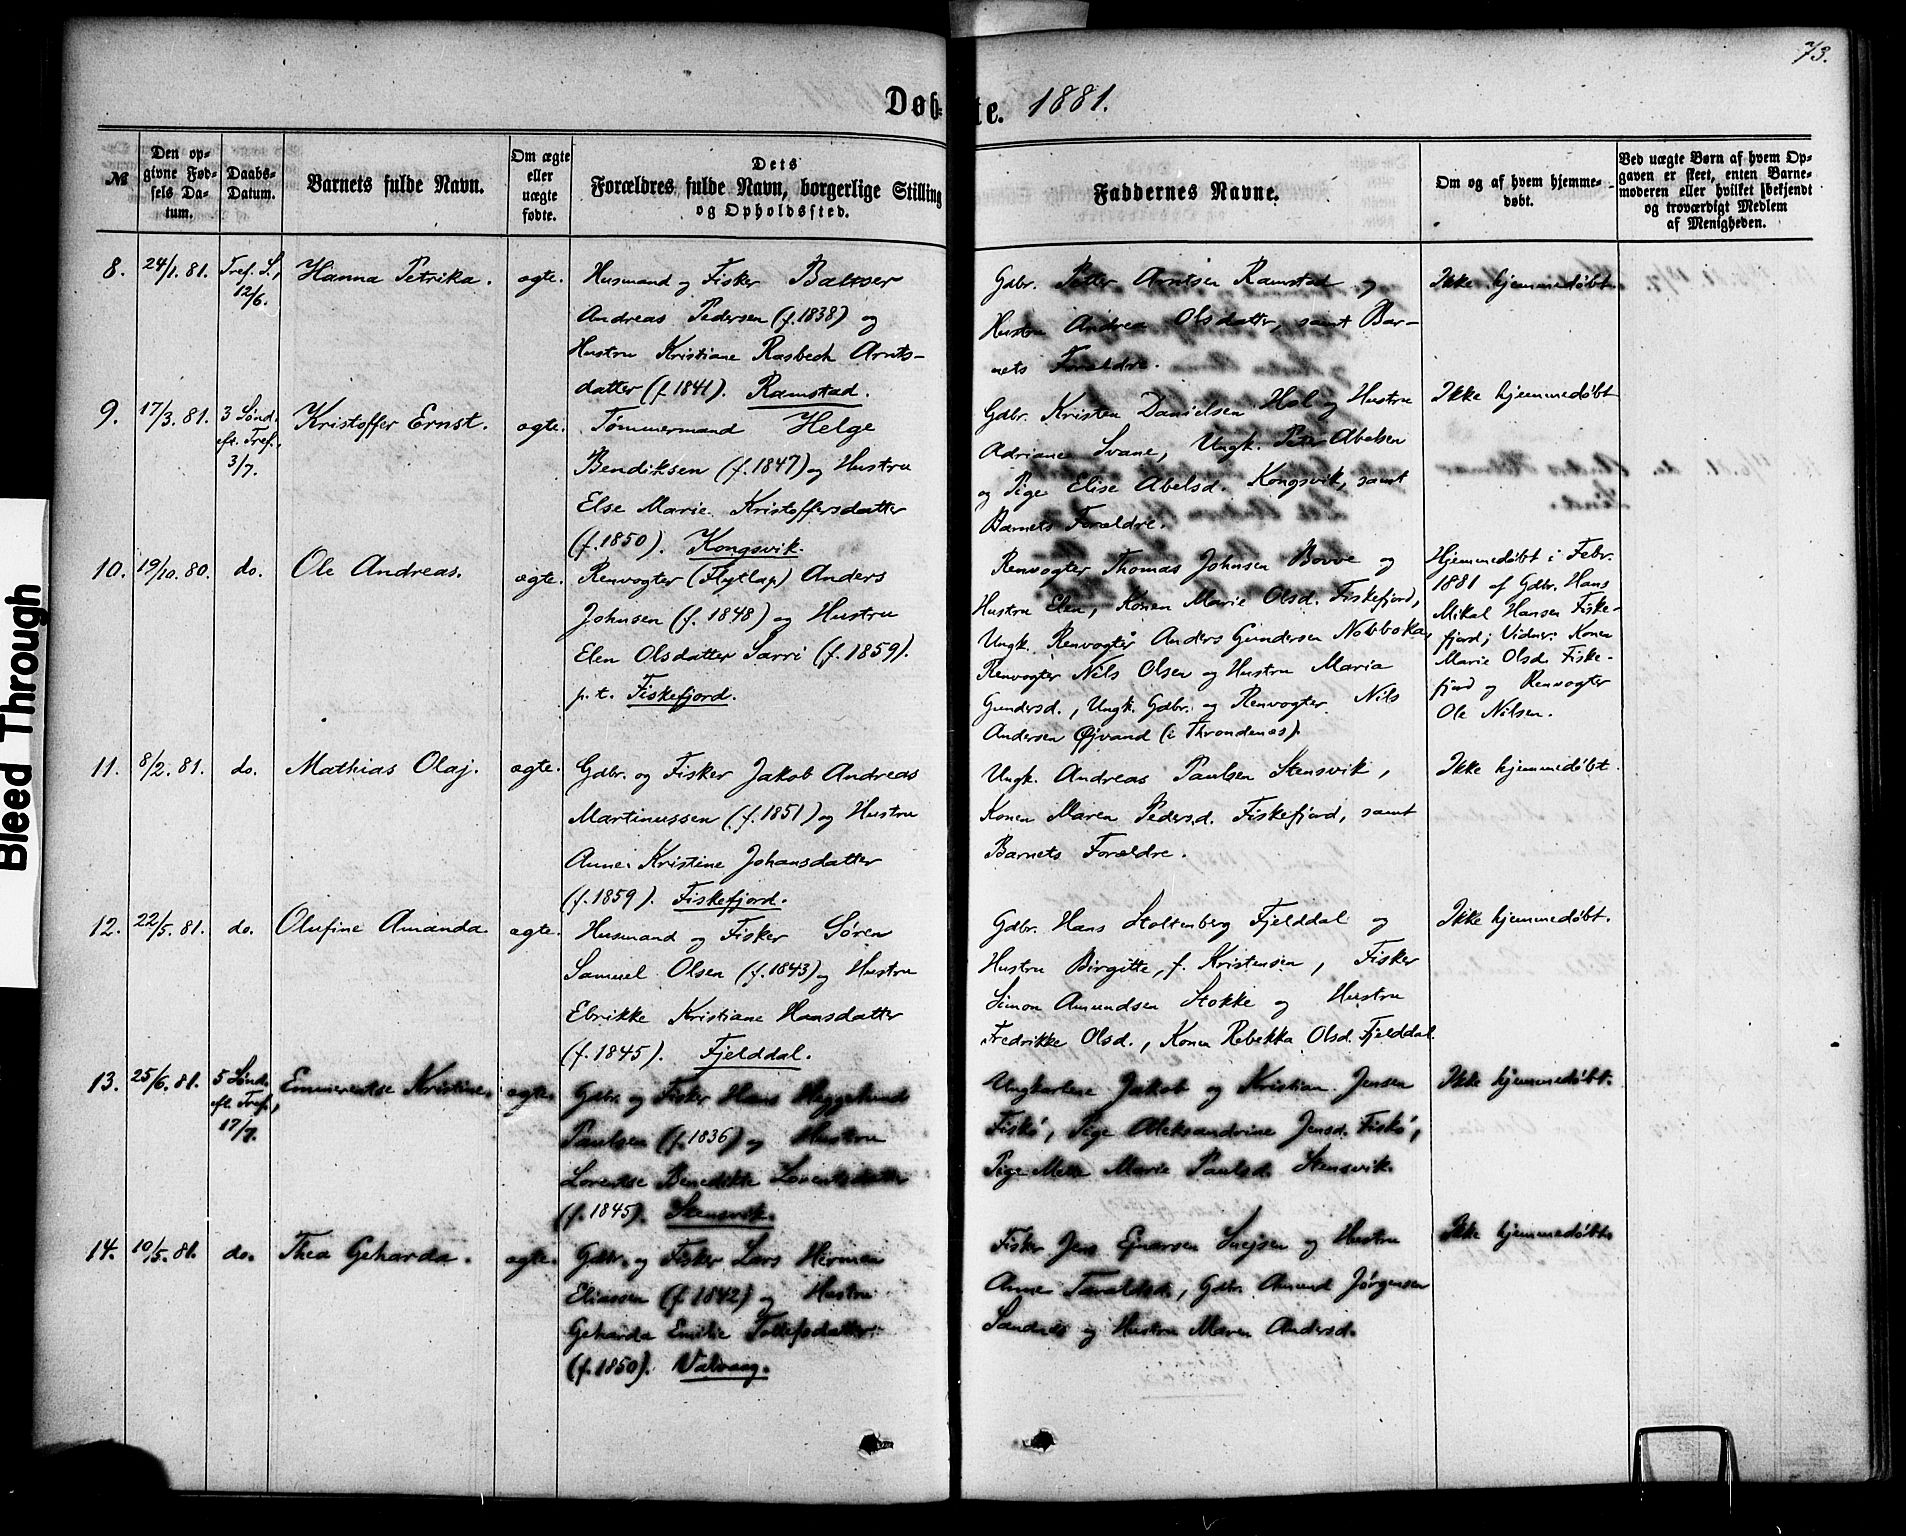 73.
Døb-
te. 1881.
№
Den op-
givne Fød-
sels Da-
tum.
Daabs-
Datum.
Barnets fulde Navn.
Om ægte
eller
uægte
fødte.
Dets
Forældres fulde Navn, borgerlige Stilling
og Opholdssted.
Faddernes Navne.
Om og af hvem hjemme-
døbt.
Ved uægte Børn af hvem Op-
gaven er skeet, enten Barne-
moderen eller hvilket bekjendt
og troværdigt Medlem
af Menigheden.
8.
24/1. 81.
Tref. S.,
12/6.
Hanna Petrika.
ægte.
Husmand og Fisker Baltser
Andreas Pedersen (f. 1838) og
Hustru Kristiane Rasbech Arnts-
datter (f. 1841). Ramstad.
Gdbr. Petter Arntsen Ramstad og
Hustru Andrea Olsdatter, samt Bar-
nets Forældre.
Ikke hjemmedøbt.
9.
17/3. 81.
3 Sønd.
eft. Tref.,
3/7.
Kristoffer Ernst.
ægte.
Tømmermand Helge
Bendiksen (f. 1847) og Hustru
Else Marie Kristoffersdatter
(f. 1850). Kongsvik.
Gdbr. Kristen Danielsen Hol og Hustru
Adriane Svane, Ungk. Peter Abelsen
og Pige Elise Abelsd. Kongsvik, samt
Barnets Forældre.
Ikke hjemmedøbt.
10.
19/10. 80.
do.
Ole Andreas.
ægte.
Renvogter (Flytlap) Anders
Johnsen (f. 1848) og Hustru
Elen Olsdatter Sarri (f. 1859).
p. t. Fiskefjord.
Renvogter Thomas Johnsen Bovve og
Hustru Elen, Konen Marie Olsd. Fiskefjord,
Ungk. Renvogter Anders Gundersen Nobboka,
Renvogter Nils Olsen og Hustru Maria
Gundersd., Ungk. Gdbr. og Renvogter Nils
Andersen Øjvand (i Throndenæs).
Hjemmedøbt i Febr.
1881 af Gdbr. Hans
Mikal Hansen Fiske-
fjord; Vidner: Konen
Marie Olsd. Fiske-
fjord og Renvogter
Ole Nilsen.
11.
8/2. 81.
do.
Mathias Olaj.
ægte.
Gdbr. og Fisker Jakob Andreas
Martinussen (f. 1851) og Hustru
Anne Kristine Johansdatter
(f. 1859). Fiskefjord.
Ungk. Andreas Paulsen Stensvik,
Konen Maren Pedersd. Fiskefjord, samt
Barnets Forældre.
Ikke hjemmedøbt.
12.
22/5. 81.
do.
Olufine Amanda.
ægte.
Husmand og Fisker Søren
Samuel Olsen (f. 1843) og Hustru
Ebrikke Kristiane Hansdatter
(f. 1845). Fjelddal.
Gdbr. Hans Stoltenberg Fjelddal og
Hustru Birgitte, f. Kristensen, Fisker
Simon Amundsen Stokke og Hustru
Fredrikke Olsd., Konen Rebekka Olsd. Fjelddal.
Ikke hjemmedøbt.
13.
25/6. 81.
5 Sønd.
eft. Tref.,
17/7.
Emmerentse Kristine.
ægte.
Gdbr. og Fisker Hans
Paulsen (f. 1836) og Hustru
Lorentse Benedikte Lorentsdatter
(f. 1845). Stensvik.
Ungkarlene Jakob og Kristian Jensen
Fiskø, Pige Aleksandrine Jensd. Fiskø,
Pige Mette Marie Paulsd. Stensvik.
Ikke hjemmedøbt.
14.
10/5. 81.
do.
Thea Geharda.
ægte.
Gdbr. og Fisker Lars Herman
Eliassen (f. 1842) og Hustru
Geharda Emilie Tollefsdatter
(f. 1850). Valvaag.
Fisker Jens Ejnarsen Snejsen og Hustru
Anne Taraldsd., Gdbr. Amund Jørgensen
Sandnes og Hustru Maren Andersd.
Ikke hjemmedøbt.
Bleed Through